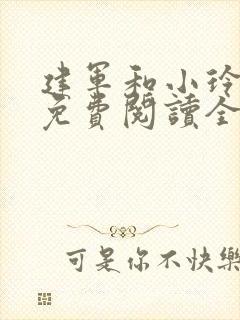 建军和小玲
免費閱讀全
可是你不快樂